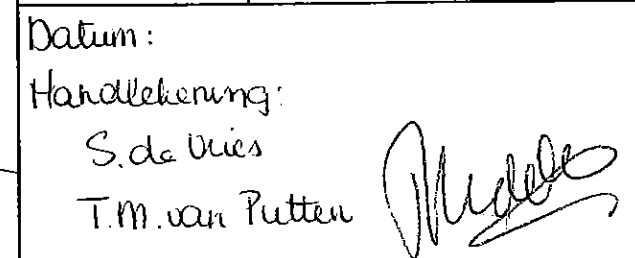 Datum:
Handtekening:
S. de Vries
T.M. van Putten